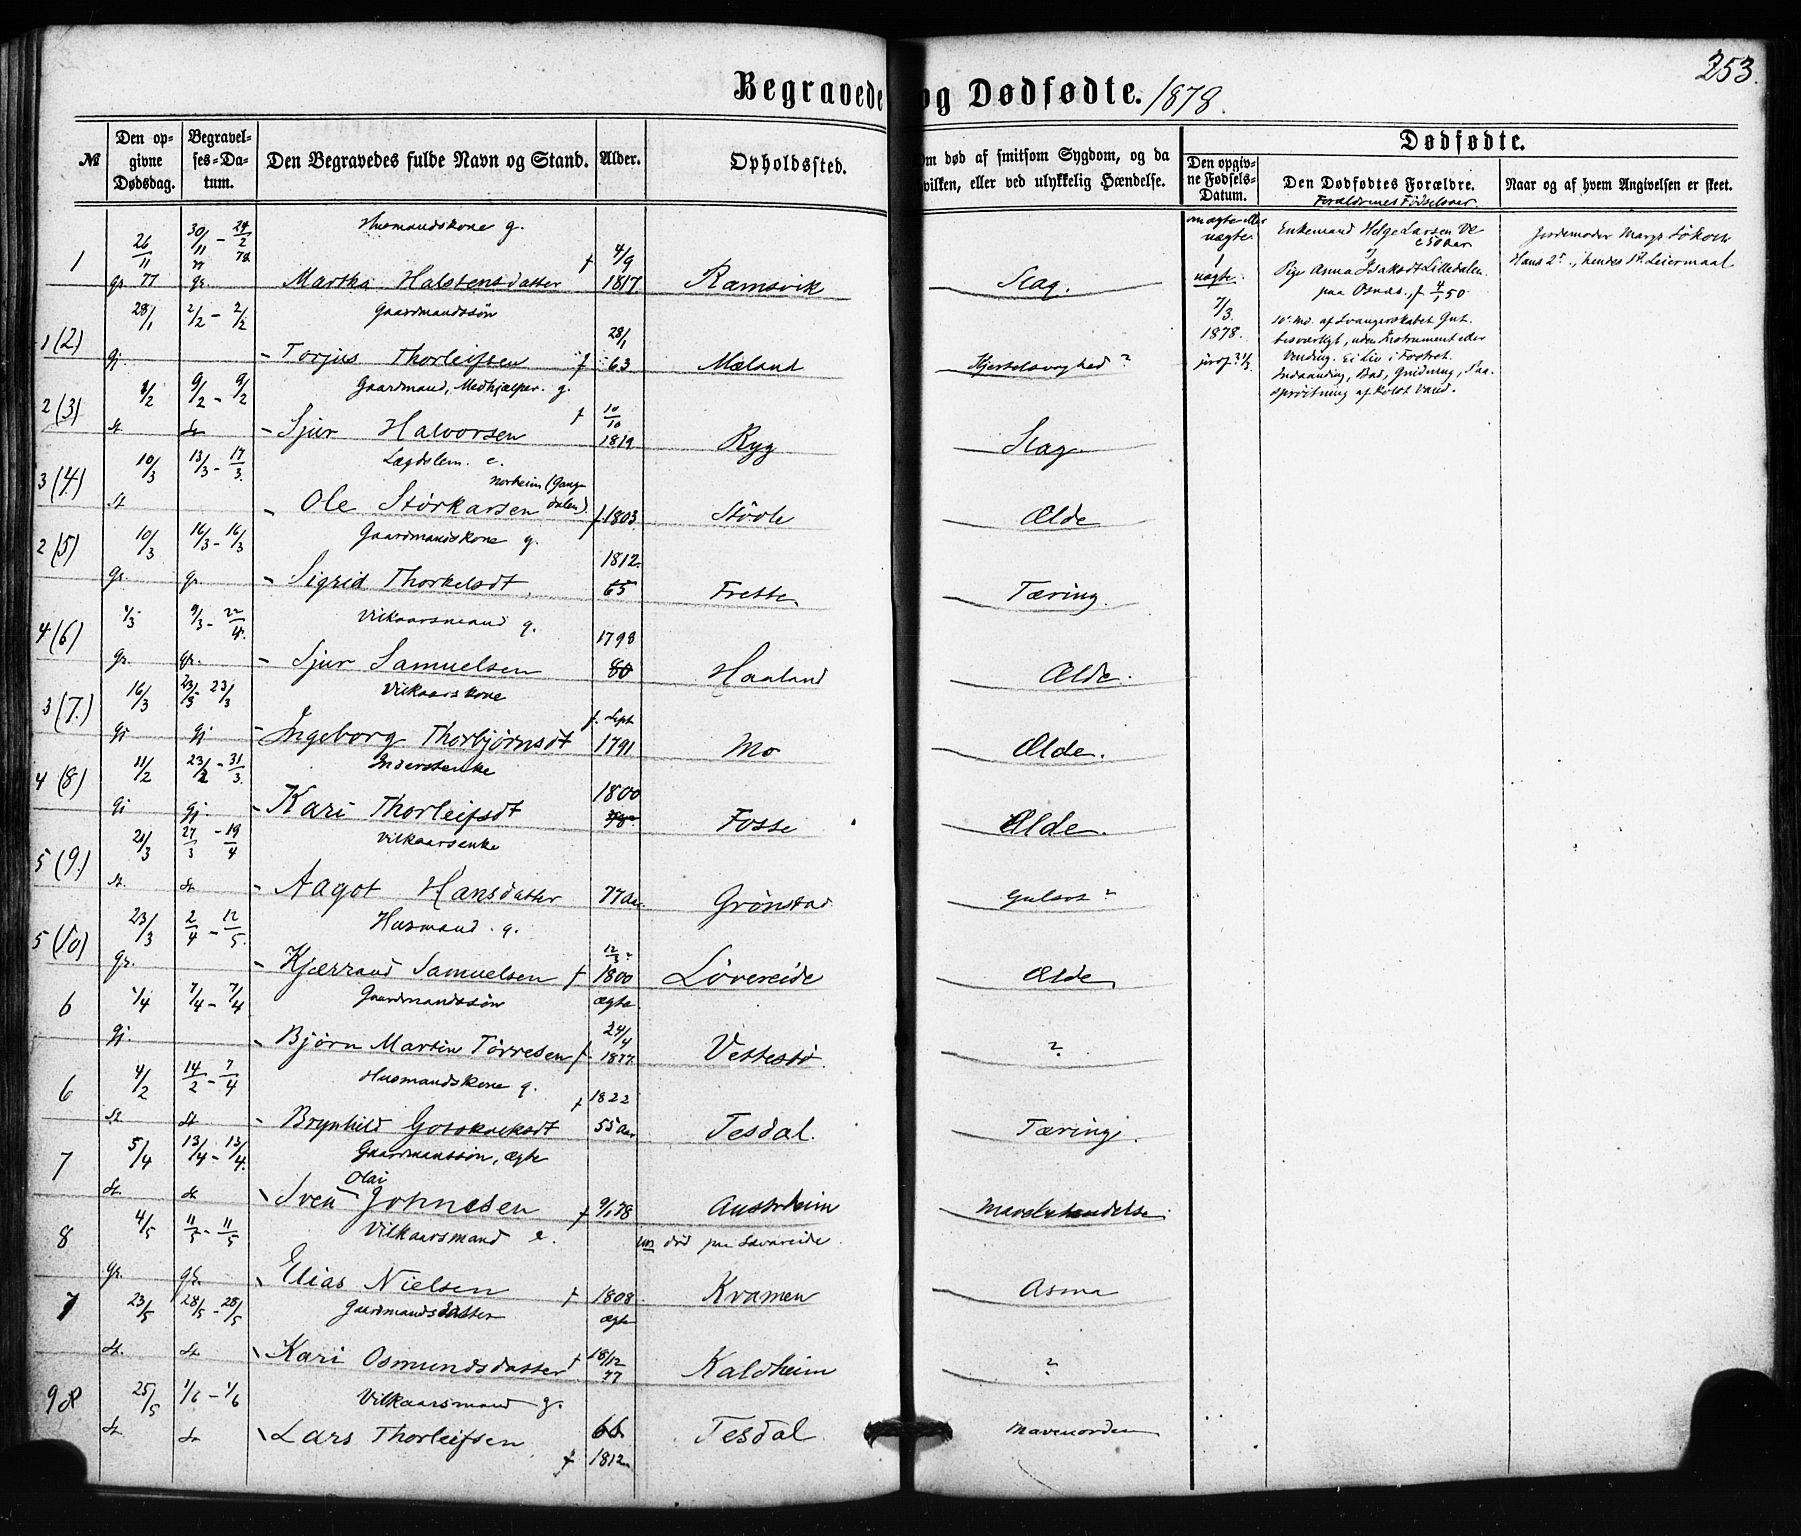 253.
Begravede og Dødfødte. 1878.
№
Den opgivne Dødsdag.
Begravelses-Datum.
Den Begravedes fulde Navn og Stand.
Alder.
Opholdssted.
Om død af smitsom Sygdom, og da hvilken, eller ved ulykkelig Hændelse.
Dødfødte.
Den opgivne Fødsels-Datum.
Den Dødfødtes Forældre.
Forældrenes Fødselsaar.
Naar og af hvem Angivelsen er skeet.
Husmandskone g.
1 26/11 77 30/11 77 - 24/2 78. Martha Halstensdatter f 4/9 1817. Ramsvik Slag.
gr. gr.
Gaardmandssøn
1 (2) 28/1 2/2 - 2/2 Torjus Thorleifsen f 28/1 63 Mæland Hjertesvaghed?
gj.
Gaardmand, Medhjælper. g.
2 (3) 1/2 9/2 - 9/2 Sjur Halvorsen f 10/10 1819 Ryg Slag.
St St
Lægdslem. e.
Norheim (Gangdalen).
3 (4) 10/3 13/3 - 17/3 Ole Størkarsen f. 1803. Støvle Ælde
St
Gaardmandskone g.
2 (5) 10/3 16/3 - 16/3 Sigrid Thorkelsdt. 1812. 65 Frette Tæring.
gr. gr
Vilkaarsmand g.
4 (6) 1/3 9/3 - 22/4. Sjur Samuelsen 1798 80 Haaland Ælde.
gr. gr.
Vilkaarskone
3 (7.) 16/3 23/3 23/3 Ingeborg Thorbjørnsdt f. Sept 1791 Mo Ælde.
gj gj
Inderstenke
4 (8) 11/2 23/2 - 31/3. Kari Thorleifsdt 1800 Fosse Ælde.
gj gj
Vilkaarsenke
5 (9.) 21/3 27/3 - 19/4 Aagot Hansdatter 77 Aar. Grønstad Gulsot?
St. St
Husmand. g.
5 (10) 23/3 2/4 - 12/5. Kjærrand Samuelsen f 12/3? 1800 Løvereide Ælde
gr.
Gaardmandssøn ægte
6 1/4 7/4 - 7/4 Bjørn Martin Tørresen f 24/4 1877. Vettestø ?
gj.
Husmandskone g.
6 4/2 14/2 - 7/4 Brynhild Gotskalksdt f 1822 55 Aar Tesdal. Tæring.
St St
Gaardmanssøn, ægte
7 5/4 13/4 - 13/4. Sven Olai Johnesen f 9/1 78 Austrheim Mavebetændelse.
St. St
Vilkaarsmand e. død paa Løvareide.
8 4/5 11/5 - 11/5 Elias Nielsen f 1808. Kvamen Asma
gr. gr.
Gaardmandsdatter ægte
7 23/5 28/5 - 28/5 Kari Osmundsdatter f 18/12 77 Kaldheim ?
St. St
Vilkaarsmand g.
9 8 25/5 1/6 - 1/6 Lars Thorleifsen 66 Tesdal. Maveonde
St. St f 1812
ægte eller uægte
1
uægte.
7/3.
1878.
Enkemand Helge Larsen Ve
c 50 Aar
og
Pige Anna Isaksdt Lilledalen
paa Osnes, f 4/1 50
10. Md. af Svangerskabet Gut.
besværligt, uden Instrument eller
Vending. Ei Liv i Fostret.
Indaanding, Bad, Gnidning, Paasprøitning af koldt Vand.
Jordemoder Margr. Løkom
Hans 2t., hendes 1t Leiermaal